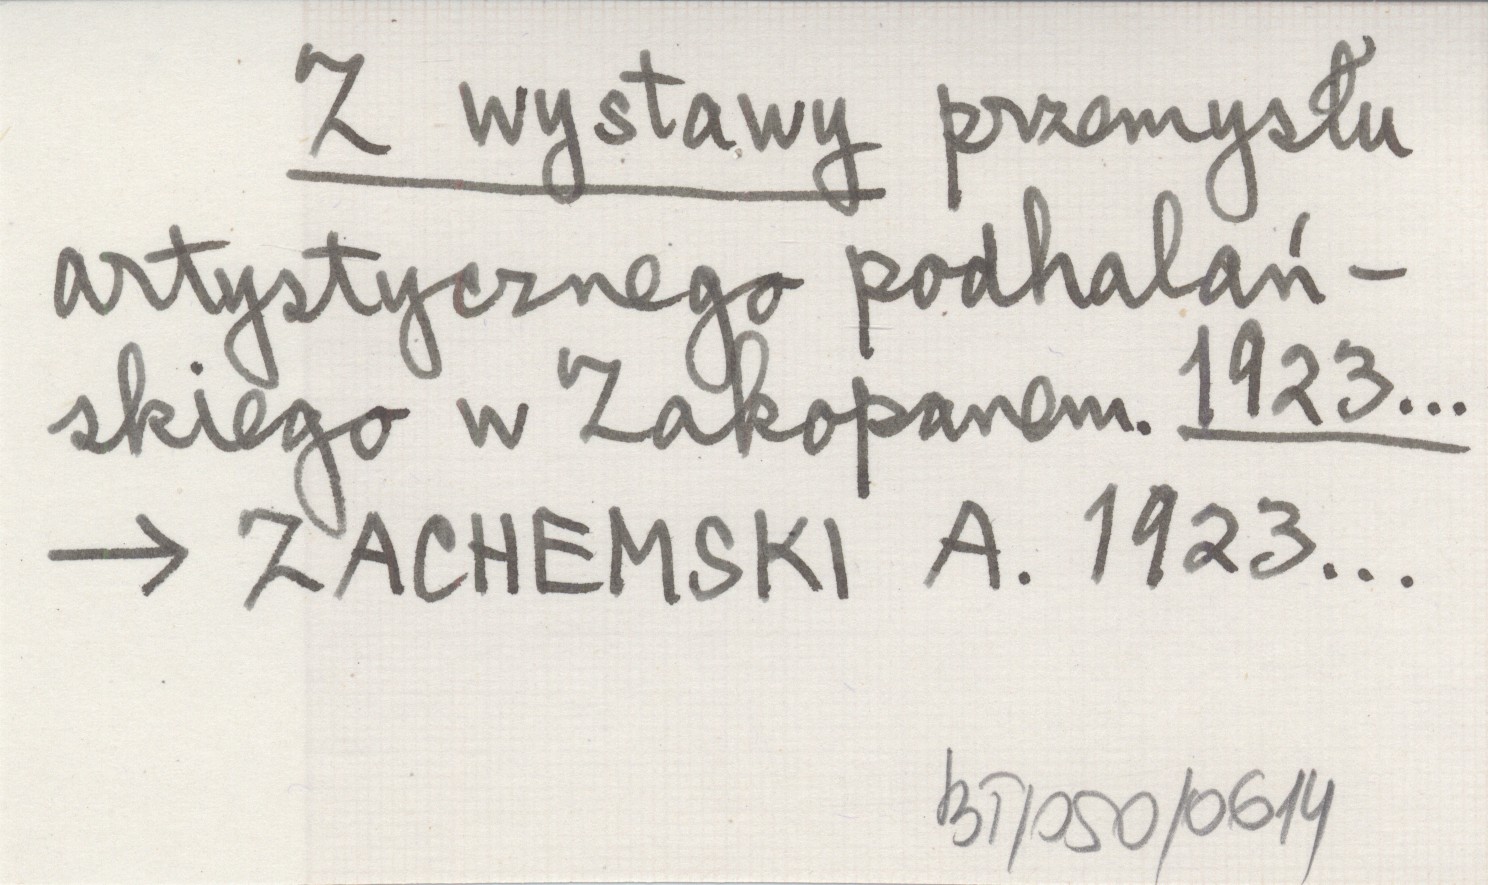 Z wystawy przemysłu
artystycznego podhalań-
skiego w Zakopanem. 1923...
→ ZACHEMSKI A. 1923...
BT/050/0614